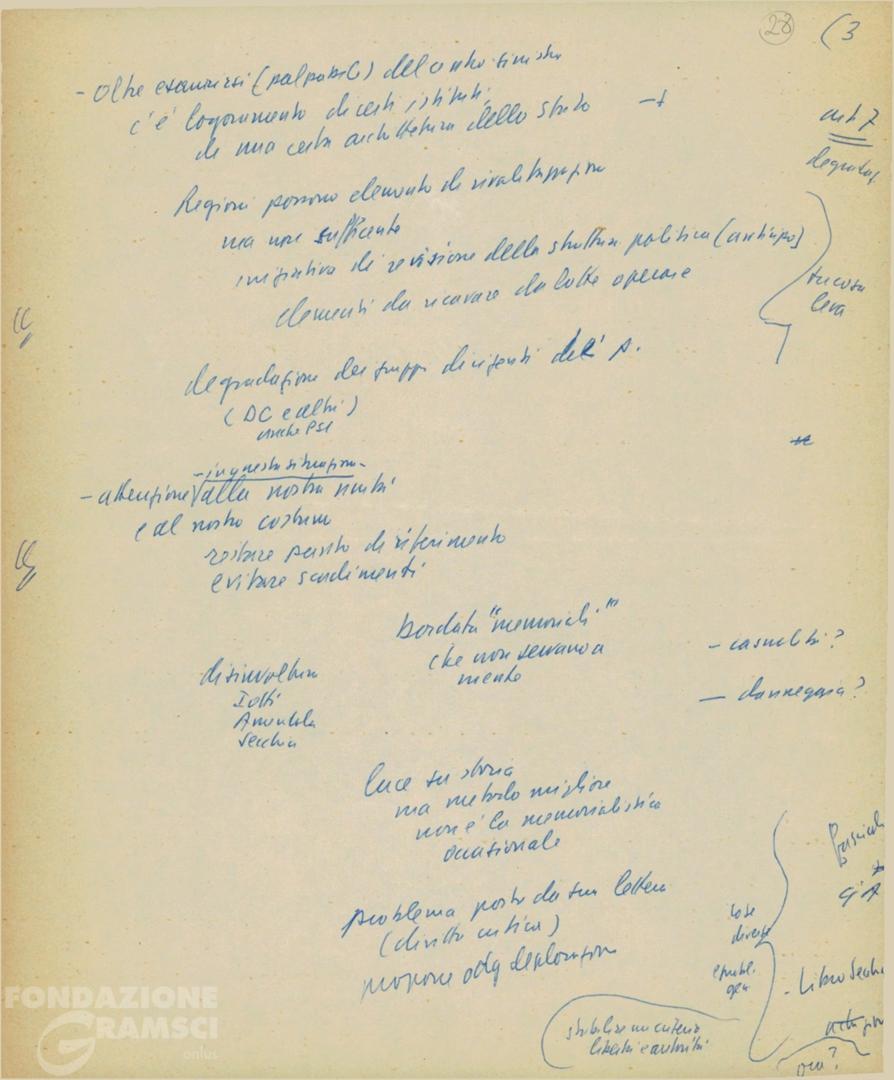 28 (3
- oltre esaurirsi (palpabile) del centro sinistra
c'è logoramento di certi istituti,
di una certa architettura dello stato
art 7
degradaz.
Regioni possono elemento di rivalutazione
ma non sufficiente
iniziativa di revisione della struttura politica (anticipo)
elementi da ricavare da lotte operaie
su cosa
leva
degradazione dei gruppi dirigenti dell'
(DC e altri)
anche PSI
- in questa situazione -
- attenzione alla nostra unità
e al nostro costume
restare punto di riferimento
evitare scadimenti
bordata "memoriali"
che non servono a
niente
- casualità?
disinvoltura
Iotti
Amendola
Secchia
luce su storia
ma metodo migliore
non è la memorialistica
occasionale
problema posto da sua lettera
(diritto critica)
propone odg deplorazione
cose
diverse
fascicoli
- Libro Secchia
stabilire un criterio
libertà e autorità
ora?
FONDAZIONE
GRAMSCI
onlus